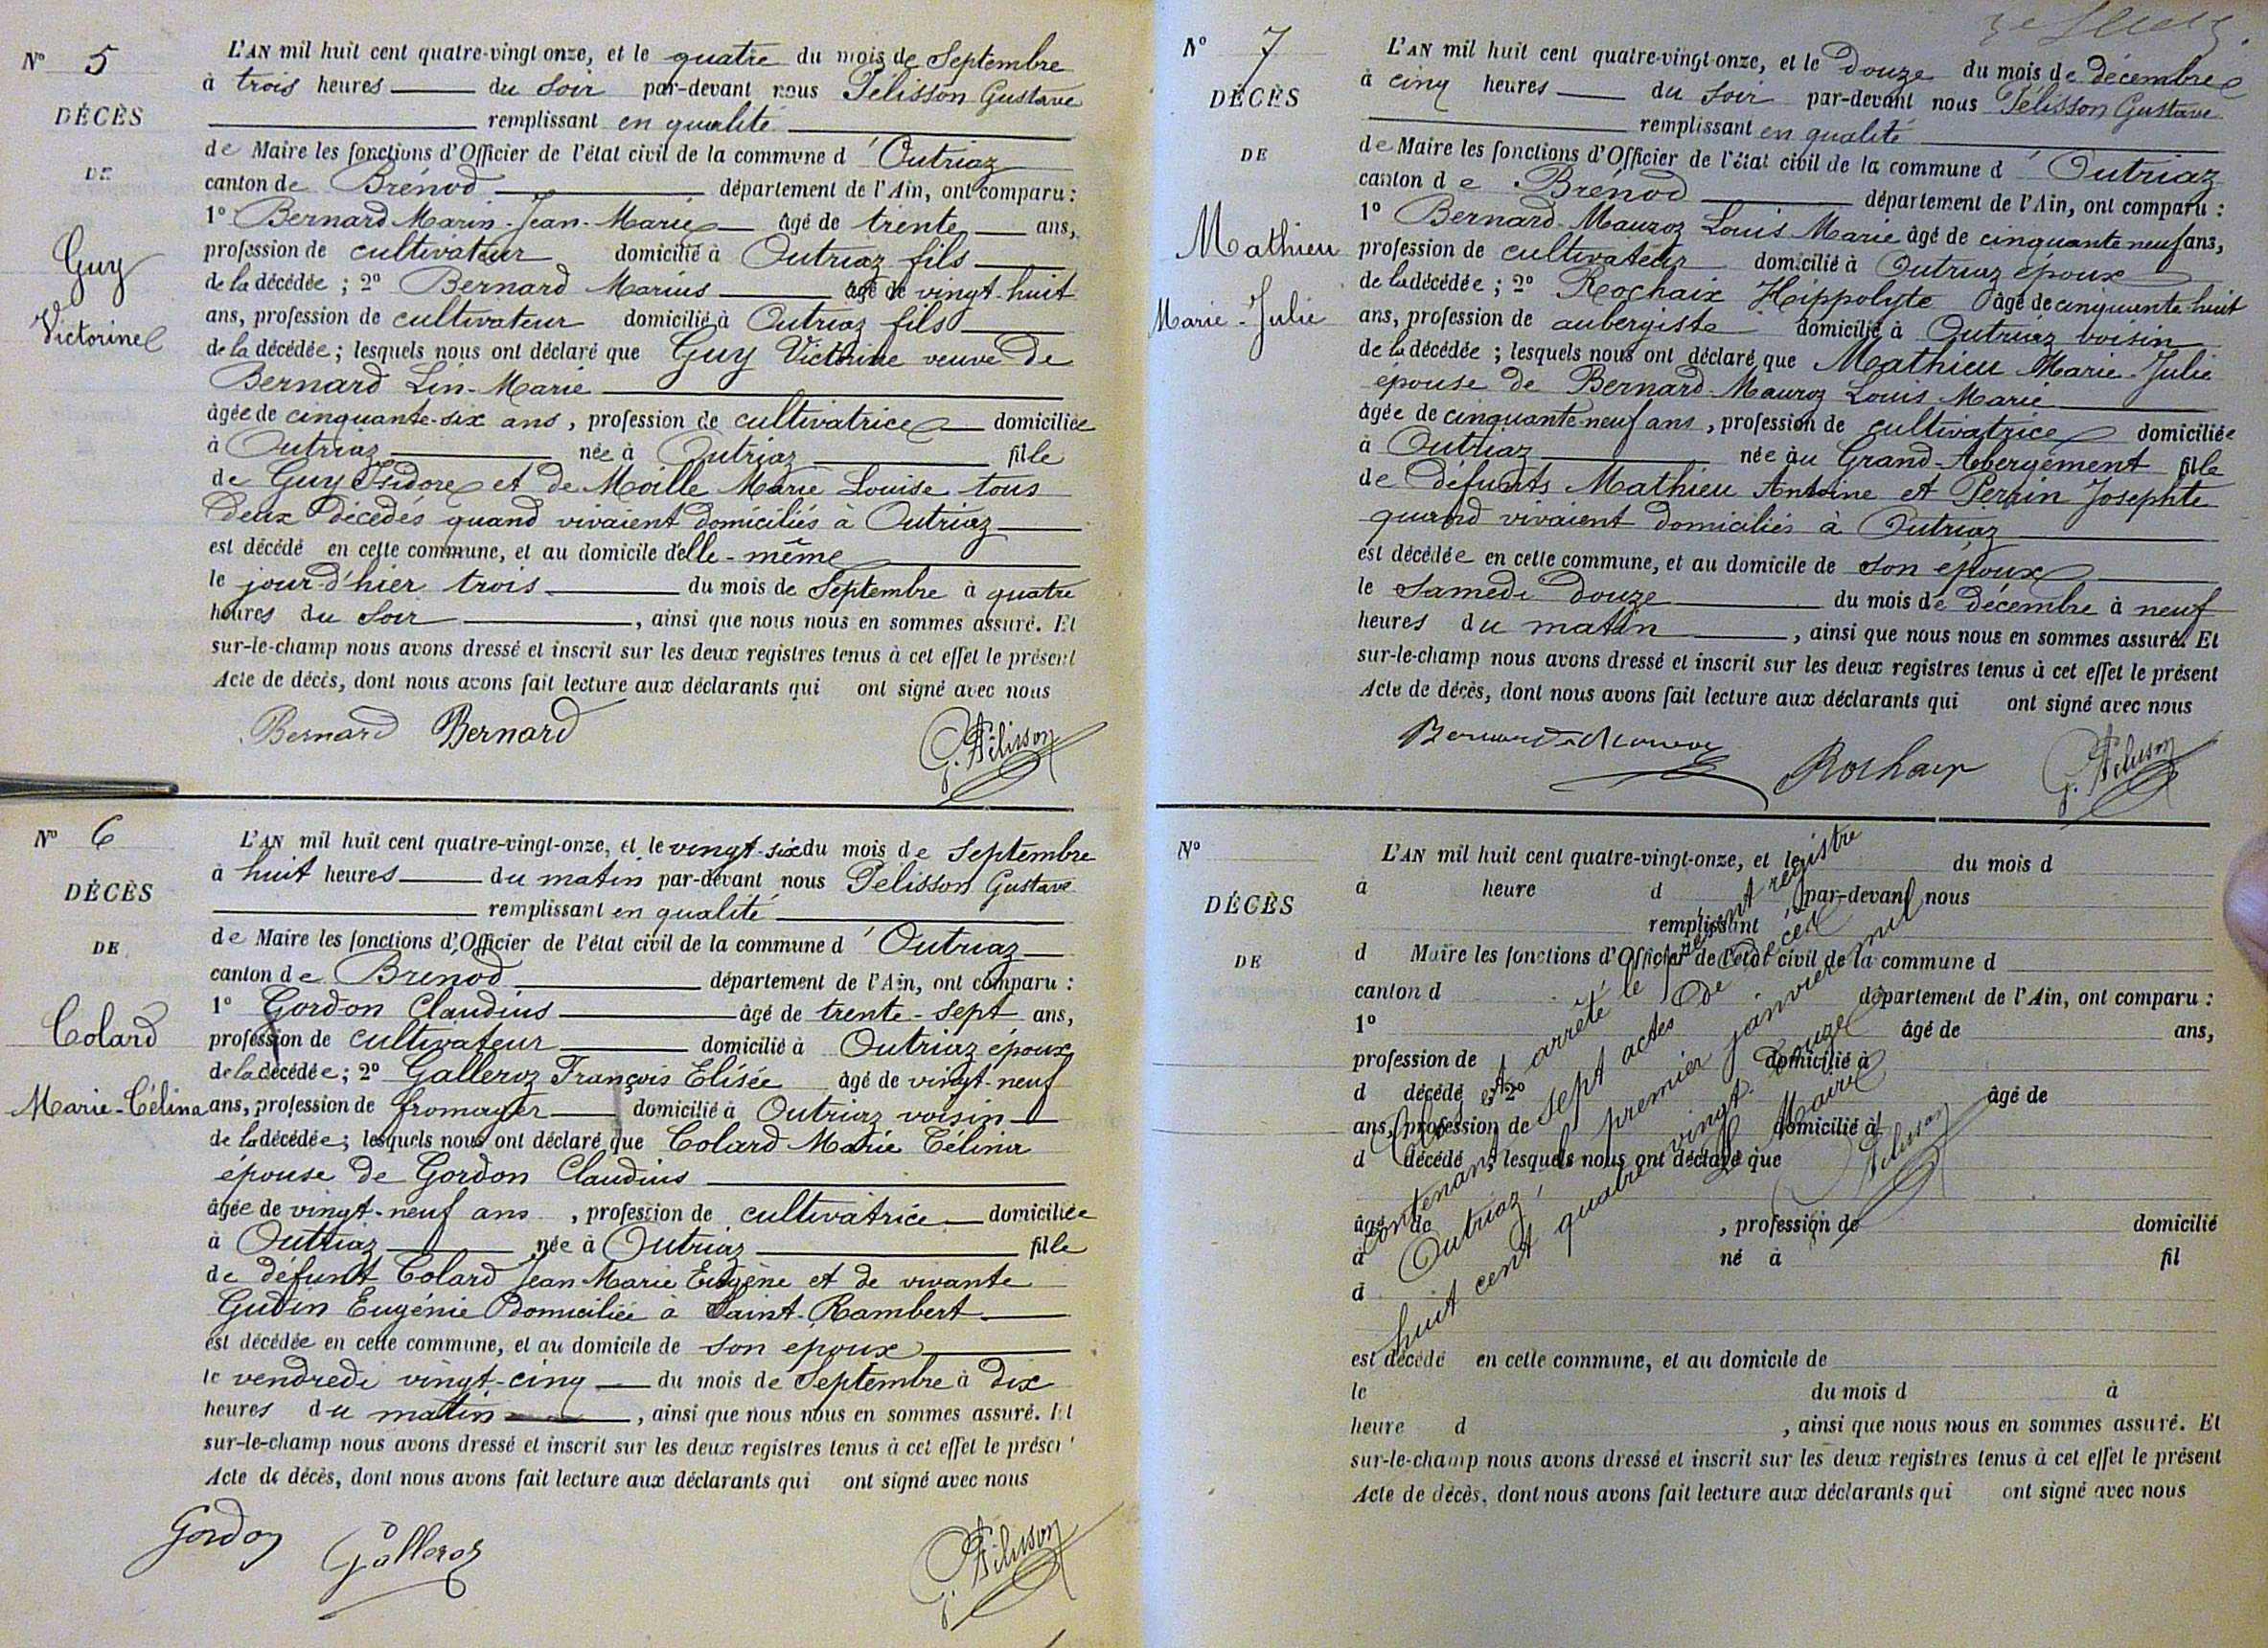 N° 5
DÉCÈS
DE
Guy
Victorine
L'AN mil huit cent quatre-vingt-onze, et le quatre du mois de Septembre
à trois heures du soir par-devant nous Pélisson Gustave
remplissant en qualité
de Maire les fonctions d'Officier de l'état civil de la commune d'Outriaz
canton de Brénod département de l'Ain, ont comparu :
1° Bernard Marin-Jean-Marie âgé de trente ans,
profession de cultivateur domicilié à Outriaz fils
de la décédée ; 2° Bernard Marius âgé de vingt-huit
ans, profession de cultivateur domicilié à Outriaz fils
de la décédée ; lesquels nous ont déclaré que Guy Victorine veuve de
Bernard Lin-Marie
âgée de cinquante-six ans, profession de cultivatrice domiciliée
à Outriaz née à Outriaz fille
de Guy Isidore et de Moille Marie Louise tous
deux décédés quand vivaient domiciliés à Outriaz
est décédé en cette commune, et au domicile d'elle-même
le jour d'hier trois du mois de Septembre à quatre
heures du soir, ainsi que nous nous en sommes assuré. Et
sur-le-champ nous avons dressé et inscrit sur les deux registres tenus à cet effet le présent
Acte de décès, dont nous avons fait lecture aux déclarants qui ont signé avec nous
Bernard Bernard G. Pélisson
N° 6
DÉCÈS
DE
Colard
Marie-Célina
L'AN mil huit cent quatre-vingt-onze, et le vingt-six du mois de Septembre
à huit heures du matin par-devant nous Pélisson Gustave
remplissant en qualité
de Maire les fonctions d'Officier de l'état civil de la commune d'Outriaz
canton de Brénod département de l'Ain, ont comparu :
1° Gordon Claudius âgé de trente-sept ans,
profession de cultivateur domicilié à Outriaz époux
de la décédée ; 2° Galleroz François Elisée âgé de vingt-neuf
ans, profession de fromager domicilié à Outriaz voisin
de la décédée ; lesquels nous ont déclaré que Colard Marie Célina
épouse de Gordon Claudius
âgée de vingt-neuf ans, profession de cultivatrice domiciliée
à Outriaz née à Outriaz fille
de défunt Colard Jean Marie Eugène et de vivante
Gudin Eugénie domiciliée à Saint-Rambert
est décédée en cette commune, et au domicile de son époux
le vendredi vingt-cinq du mois de Septembre à dix
heures du matin, ainsi que nous nous en sommes assuré. Et
sur-le-champ nous avons dressé et inscrit sur les deux registres tenus à cet effet le présent
Acte de décès, dont nous avons fait lecture aux déclarants qui ont signé avec nous
Gordon Galleroz G. Pélisson
N° 7
DÉCÈS
DE
Mathieu
Marie-Julie
L'AN mil huit cent quatre-vingt-onze, et le douze du mois de décembre
à cinq heures du soir par-devant nous Pélisson Gustave
remplissant en qualité
de Maire les fonctions d'Officier de l'état civil de la commune d'Outriaz
canton de Brénod département de l'Ain, ont comparu :
1° Bernard-Mauroz Louis Marie âgé de cinquante neuf ans,
profession de cultivateur domicilié à Outriaz époux
de la décédée ; 2° Rochaix Hippolyte âgé de cinquante-huit
ans, profession de aubergiste domicilié à Outriaz voisin
de la décédée ; lesquels nous ont déclaré que Mathieu Marie-Julie
épouse de Bernard-Mauroz Louis Marie
âgée de cinquante-neuf ans, profession de cultivatrice domiciliée
à Outriaz née au Grand-Abergement fille
de défunts Mathieu Antoine et Perrin Josephte
quand vivaient domiciliés à Outriaz
est décédée en cette commune, et au domicile de son époux
le samedi douze du mois de décembre à neuf
heures du matin, ainsi que nous nous en sommes assuré. Et
sur-le-champ nous avons dressé et inscrit sur les deux registres tenus à cet effet le présent
Acte de décès, dont nous avons fait lecture aux déclarants qui ont signé avec nous
Bernard-Mauroz Rochaix G. Pélisson
N°
DÉCÈS
DE
L'AN mil huit cent quatre-vingt-onze, et le du mois d
à heure d par-devant nous
remplissant
d Maire les fonctions d'Officier de l'état civil de la commune d
canton d département de l'Ain, ont comparu :
1° âgé de ans,
profession de domicilié à
d décédé ; 2° âgé de
ans, profession de domicilié à
d décédé ; lesquels nous ont déclaré que
âgé de , profession de domicilié
à né à fil
d
est décédé en cette commune, et au domicile de
le du mois d à
heure d , ainsi que nous nous en sommes assuré. Et
sur-le-champ nous avons dressé et inscrit sur les deux registres tenus à cet effet le présent
Acte de décès, dont nous avons fait lecture aux déclarants qui ont signé avec nous
Clos et arrêté le présent registre
contenant sept actes de décès
Outriaz, le premier janvier mil
huit cent quatre vingt douze
Le Maire
G. Pélisson